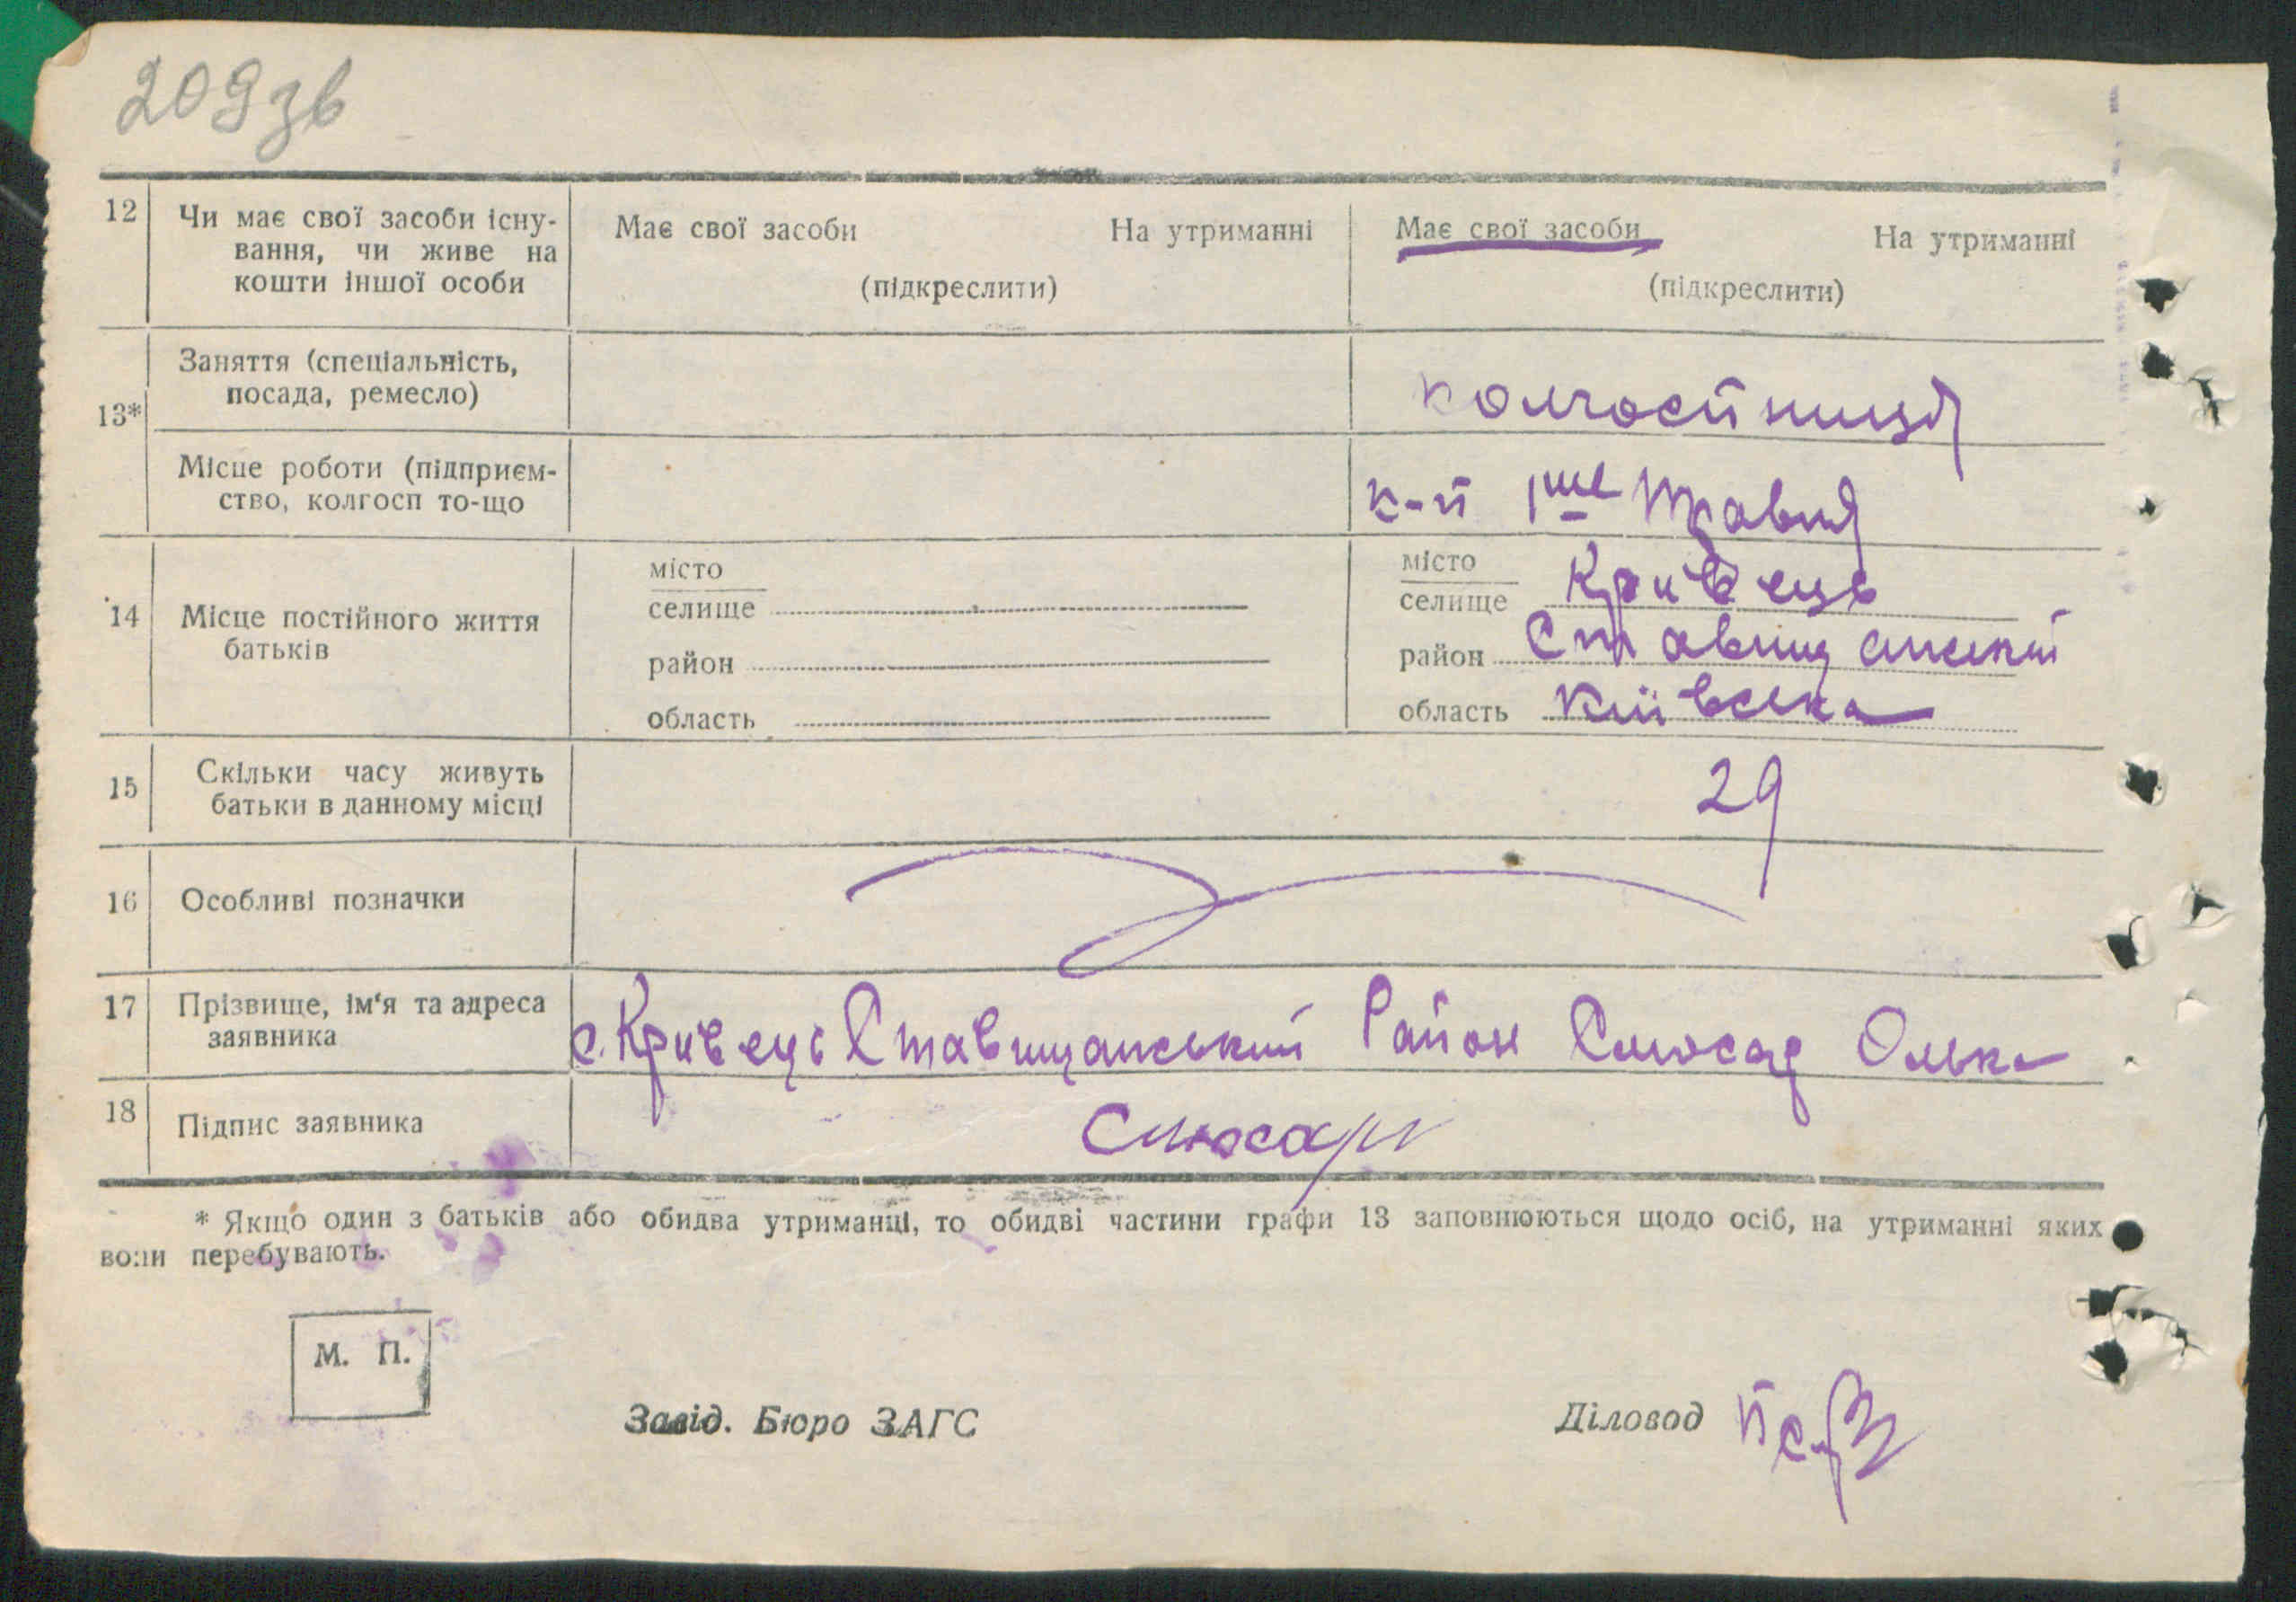 209 зв
12 Чи має свої засоби існу- Має свої засоби На утриманні Має свої засоби На утриманні
вання, чи живе на
кошти іншої особи (підкреслити) (підкреслити)
Заняття (спеціальність,
посада, ремесло) колгоспниця
13*
Місце роботи (підприєм- к-п 1ше травня
ство, колгосп то-що
14 Місце постійного життя
батьків
місто
селище
район
область
місто
селище Кривець
район Ставищанський
область Київська
15 Скільки часу живуть 29
батьки в данному місці
16 Особливі позначки
17 Прізвище, ім‘я та адреса
заявника с. Кривець Ставищанський Район Слюсар Олька
18 Підпис заявника Слюсарь
* Якщо один з батьків або обидва утриманці, то обидві частини графи 13 заповнюються щодо осіб, на утриманні яких
вони перебувають.
М. П.
Завід. Бюро ЗАГС Діловод